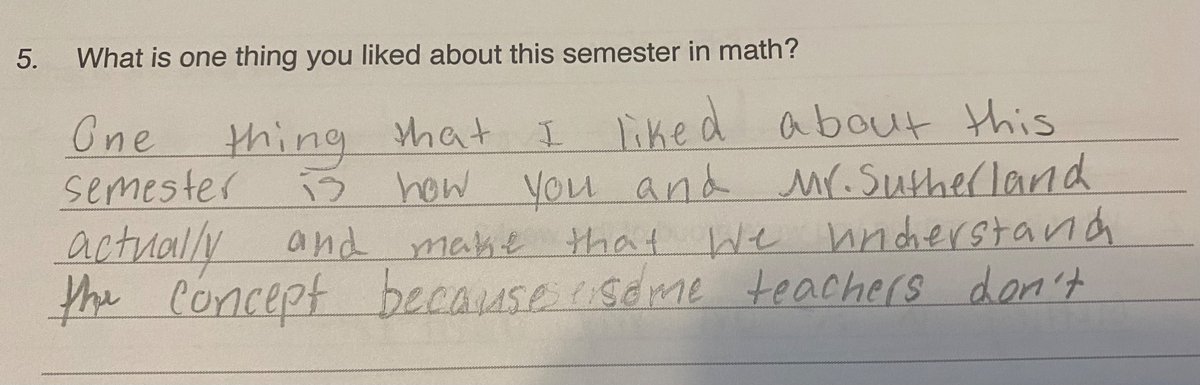 5. What is one thing you liked about this semester in math?
One thing that I liked about this
semester is how you and Mr. Sutherland
actually and make that we understand
the concept because some teachers don't